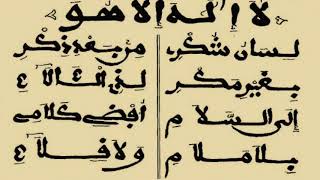 لا إله إلا هو
لسان شكر من بعد ذكر
بغير مكر لذي
إلى السلام أفضي كلامي
بلا ملام ولا